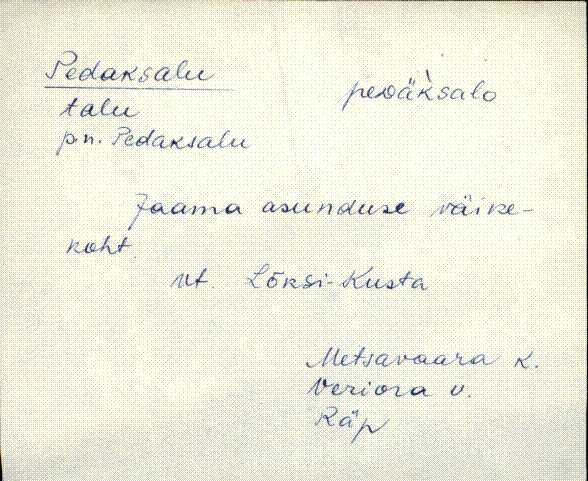 Pedaksalu
talu
p.n. Pedaksalu
Jaama asunduse väike-
koht.
vt. Lõksi-Kusta
Metsavaara k.
Veriora v.
Räp